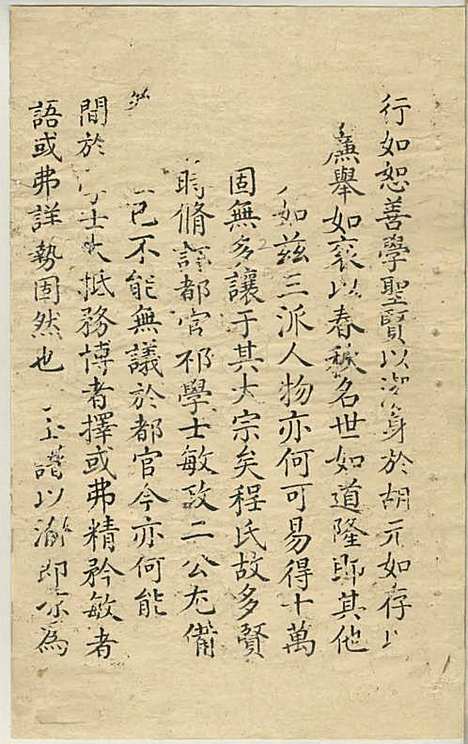 行如恕善學聖賢以淑身於胡元如存
廉舉如袞以春秋名世如道隆即其他
如茲三派人物亦何可易得十萬
固無多讓于其大宗矣程氏故多賢
時脩譜都官祁學士敏政二公尤備
已不能無議於都官今亦何能
間於學士大抵務博者擇或弗精矜敏者
語或弗詳勢固然也 至譜以瀹即亦為